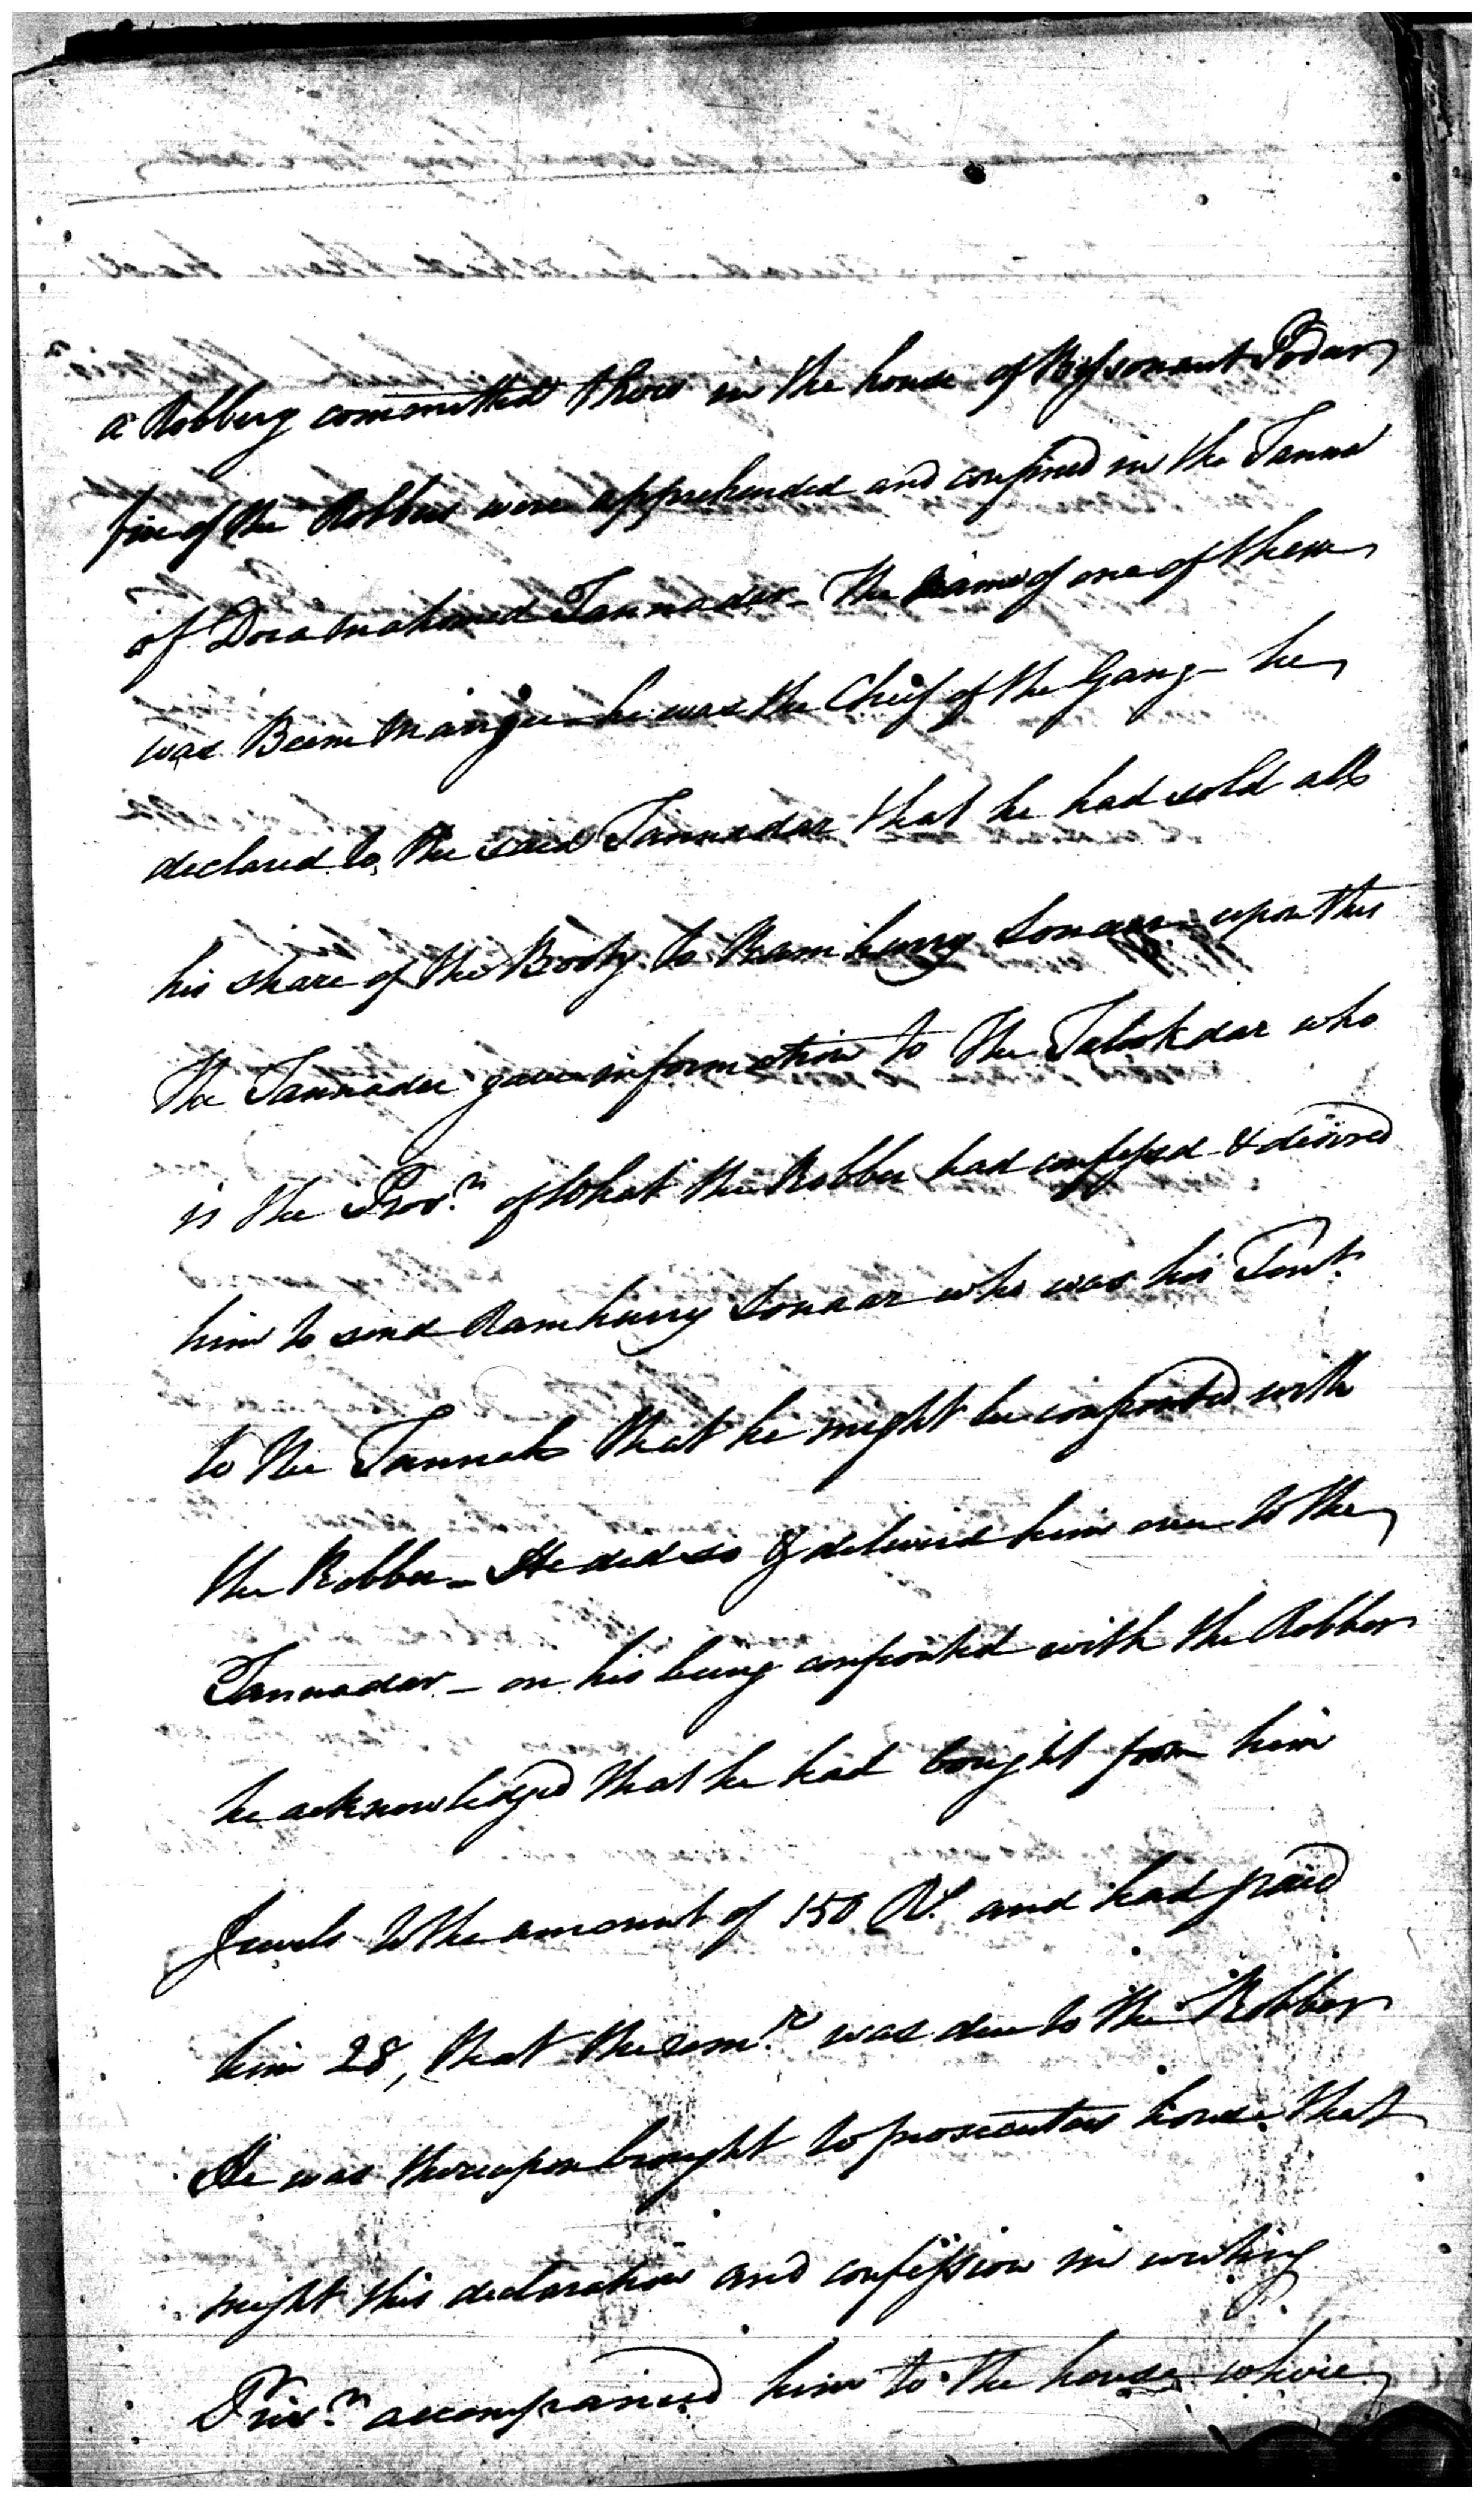 a Robbery committed there in the house of Bissonaut Podar
five of the Robbers were apprehended and confined in the Tanna
of Dora Mahomed Tannadar - The Name of one of them
was Beem Mangee - he was the Chief of the Gang - he
declared to the said Tannadar that he had sold all
his share of the Booty to Ramhurry Sonaar - upon this
the Tannadar gave information to the Talookdar who
is the Pros.r of What the Robber had confessed & desired
him to send Ramhurry Sonaar who was his Tent.
to the Tannah that he might be confronted with
the Robber - He did so & deliverd him over to the
Tannadar - on his being confronted with the Robber
he acknowledged that he had bought from him
Jewels to the amount of 150 Rs. and had paid
him 28, that the rem.r was due to the Robber
He was thereupon brought to prosecutors house that
might this declaration and confession in writing
accompanied him to the house where